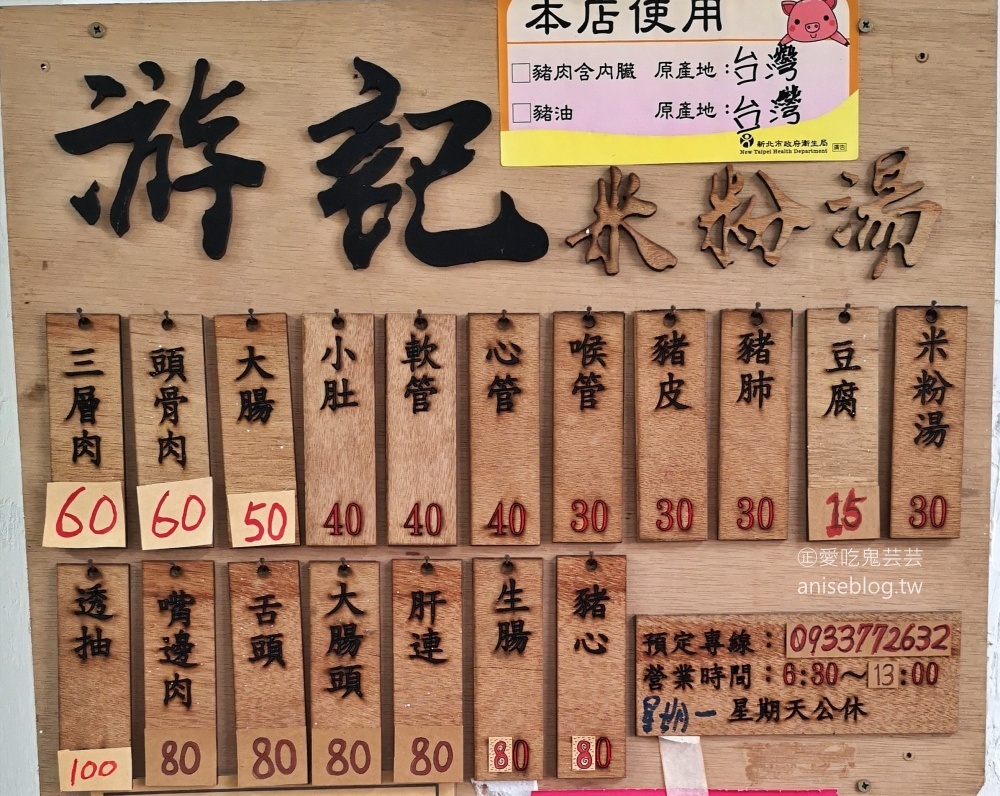 本店使用
豬肉含內臟 原產地：台灣
豬油 原產地：台灣
新北市政府衛生局 廣告
New Taipei Health Department
游記 米粉湯
三層肉 60
頭骨肉 60
大腸 50
小肚 40
軟管 40
心管 40
喉管 30
豬皮 30
豬肺 30
豆腐 15
米粉湯 30
透抽 100
嘴邊肉 80
舌頭 80
大腸頭 80
肝連 80
生腸 80
豬心 80
預定專線：0933772632
營業時間：6:30～13:00
星期一 星期天公休
㊣愛吃鬼芸芸
aniseblog.tw